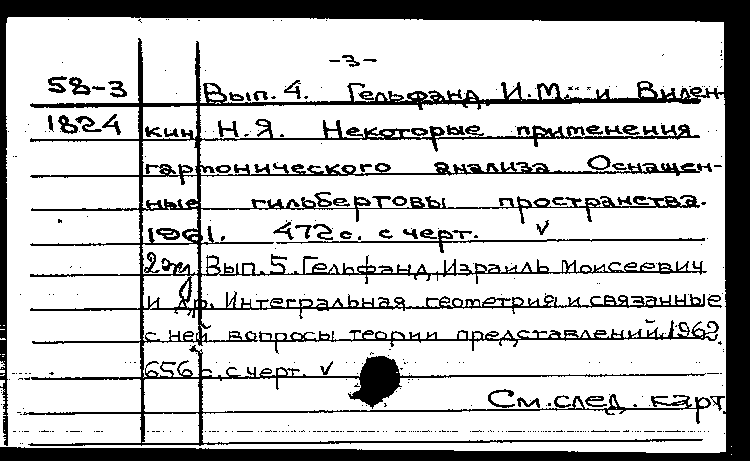 -3-
58-3 Вып. 4. Гельфанд, И.М. и Вилен-
1824 кин, Н.Я. Некоторые применения
гармонического анализа. Оснащен-
ные гильбертовы пространства.
1961. 472 с. с черт. v
2 эк. Вып. 5. Гельфанд, Израиль Моисеевич
и др. Интегральная геометрия и связанные
с ней вопросы теории представлений. 1962
656 с., с черт. v
См. след. карт